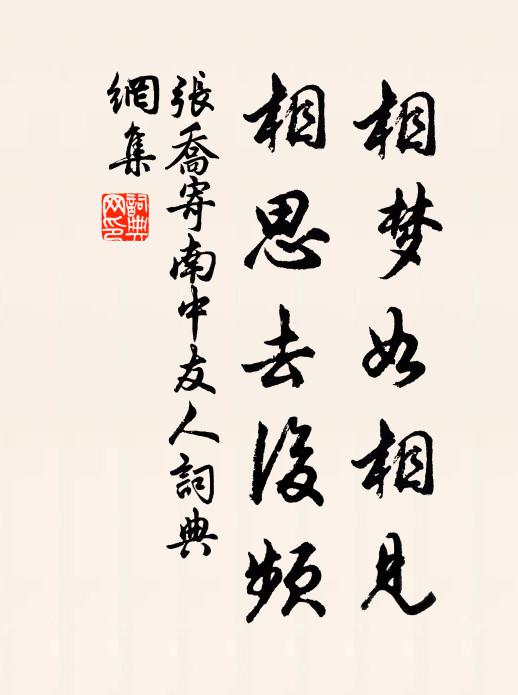 相梦如相見
相思去後頻
張喬寄南中友人詞典
網集
詞典
网印